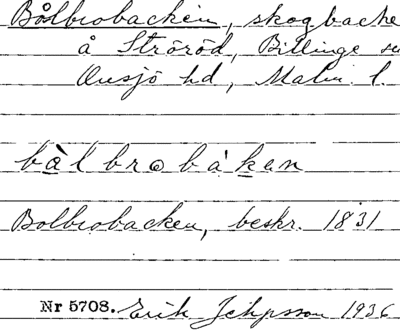 Bålbrobacken, skogbacke
å Ströröd, Billinge
Onsjö hd, Malm. l.
bàlbrobàken
Bolbrobacken, beskr. 1831
Nr 5708. Erik Jehpsson 1936